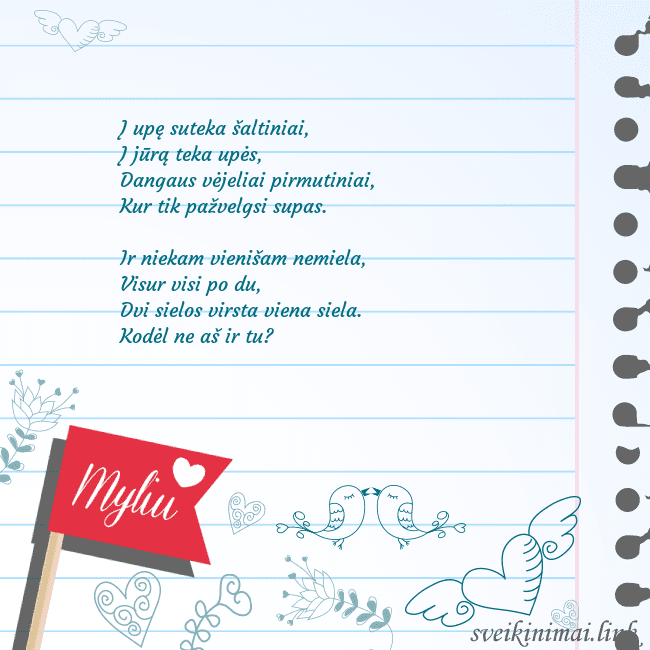 Į upę suteka šaltiniai,
Į jūrą teka upės,
Dangaus vėjeliai pirmutiniai,
Kur tik pažvelgsi supas.
Ir niekam vienišam nemiela,
Visur visi po du,
Dvi sielos virsta viena siela.
Kodėl ne aš ir tu?
Myliu
sveikinimai.link